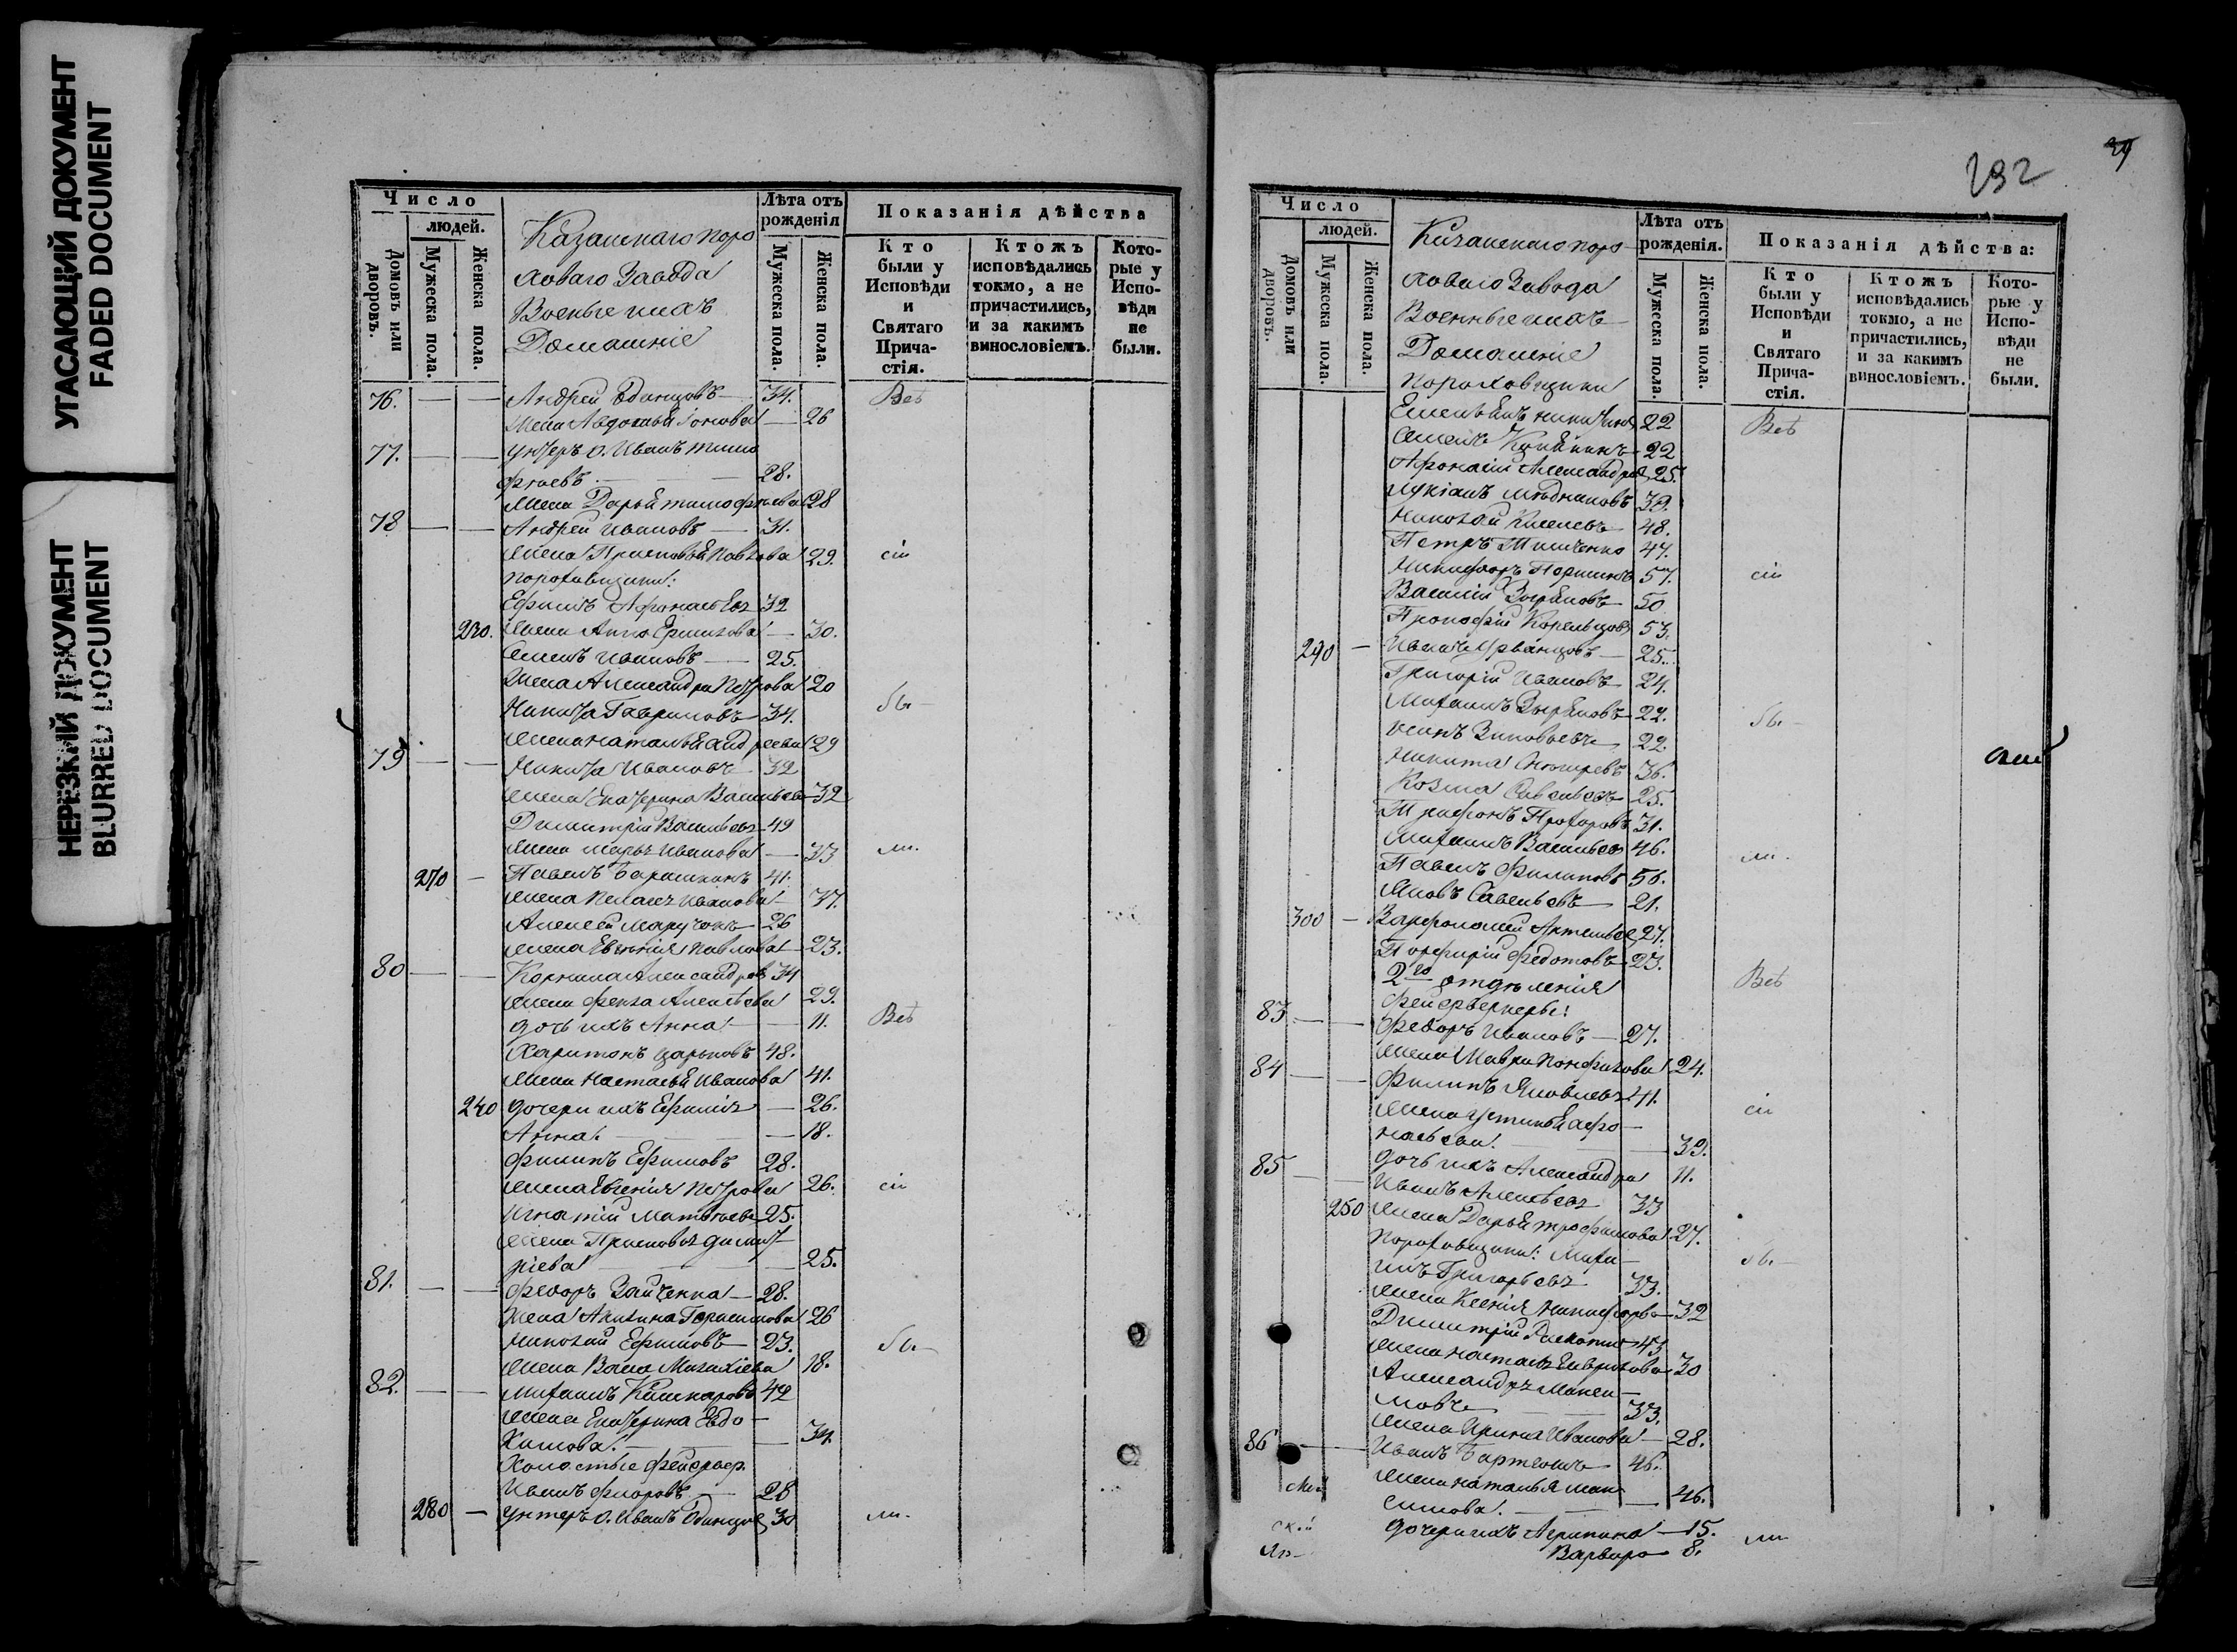 УГАСАЮЩИЙ ДОКУМЕНТ
FADED DOCUMENT
НЕРЕЗКИЙ ДОКУМЕНТ
BLURRED DOCUMENT
Число
людей.
Домовъ или дворовъ.
Мужеска пола.
Женска пола.
Казанскаго поро
ховаго Завода
Военные ихъ
Домашніе
Лѣта отъ рожденія
Мужеска пола.
Женска пола.
Показанія дѣйства
Кто были у Исповѣди и Святаго Прича-стія.
Ктожъ исповѣдались токмо, а не причастились, и за какимъ винословіемъ.
Кото-рые у Испо-вѣди не были.
76. — — Андрей Одинцовъ — 34. Всѣ
жена Авдотья Іонова — 26
77. — — Унтеръ о. Иванъ Тимо
фѣевъ — 28.
жена Дарья Тимофѣева 28
78 — — Андрей Ивановъ — 31.
жена Прасковья Павлова 29. сіи
пороховщики:
Ефимъ Афонасьевъ 32
230. жена Анна Ермилова — 30.
Семенъ Ивановъ — 25.
жена Александра Петрова 20
Никита Гавриловъ 34. бы-
жена Наталья Андреева 29
79 — — Никита Ивановъ 32
жена Екатерина Васильева 32
Димитрій Васильевъ 49
жена Марья Иванова — 33 ли.
270 — Павелъ Барашкинъ 41.
жена Пелагея Иванова 37.
Алексей 26
жена Евгенія Павлова 23.
80 — — Корнила Александровъ 34
жена Фекла Алексѣева 29.
дочь ихъ Анна — 11. Всѣ
Харитонъ Царьковъ 48.
жена Настасья Иванова 41.
240 дочери ихъ Ефимія — 26.
Анна. — 18.
Филипъ Ефимовъ 28.
жена Евгенія Петрова 26. сіи
Игнатій Матвѣевъ 25.
жена Прасковья Димит
ріева — 25.
81. — — Федоръ Зайченка — 28.
жена Акилина Герасимова 26
Николай Ефимовъ 23. бы-
жена Васса Малахіева 18.
82. — — Михаилъ 42
жена Екатерина Евдо-
кимова. — 34.
Холостые фейервер.
Иванъ Фроровъ — 28
280 — Унтеръ о. Иванъ Одинцов 30 ли.
232
29
Число
людей.
Домовъ или дворовъ.
Мужеска пола.
Женска пола.
Казанскаго поро-
ховаго Завода
Военные ихъ
Домашніе
Лѣта отъ рожденія.
Мужеска пола.
Женска пола.
Показанія дѣйства:
Кто были у Исповѣди и Святаго Прича-стія.
Ктожъ исповѣдались токмо, а не причастились, и за какимъ винословіемъ.
Кото-рые у Испо-вѣди не были.
пороховщики
Емельянъ Никитинъ 22 Всѣ
Семенъ 22
Афонасій Александров 25.
Лукіанъ Мѣдниковъ 39.
Николай Киселевъ 48.
Петръ Тимченко 47.
Никифоръ Поршинъ 57. сіи
Василій Зыряновъ 50
Прокофій Корельцовъ 53.
290 — Иванъ Урванцовъ — 25.
Григорій Ивановъ 24.
Михаилъ Зыряновъ 22. бы-
Осипъ Зиновьевъ 22.
Никита 36.
Козма Савельевъ 25.
Трифонъ Прохоровъ 31.
Михаилъ Васильев 46. ли.
Павелъ Филиповъ 56.
Яковъ Савельевъ 21.
300 — Варфоломей Артемьев 27.
Порфирій Федотовъ 23.
2го отдѣленія Всѣ
фейерверкеры:
83. — — Федоръ Ивановъ — 27.
жена Мавра Панфилова 24.
84 — — Филипъ Яковлевъ 41.
жена Устинья Афо- сіи
насьева. — 39.
дочь ихъ Александра 11.
85 — — Иванъ Алексѣевъ 33
250 жена Дарья Трофимова 27.
пороховщики: Миха- бы-
илъ Григорьевъ 33.
жена Ксенія Никифорова 32
Димитрій 43
жена Настасья Гаврилова 30
Александръ Макси-
мовъ — 33.
жена Ирина Иванова — 28.
86 — — Иванъ Бартеневъ 46.
жена Наталья Мак
симова. — 46.
дочери ихъ Агрипина — 15. ли
Варвара 8.